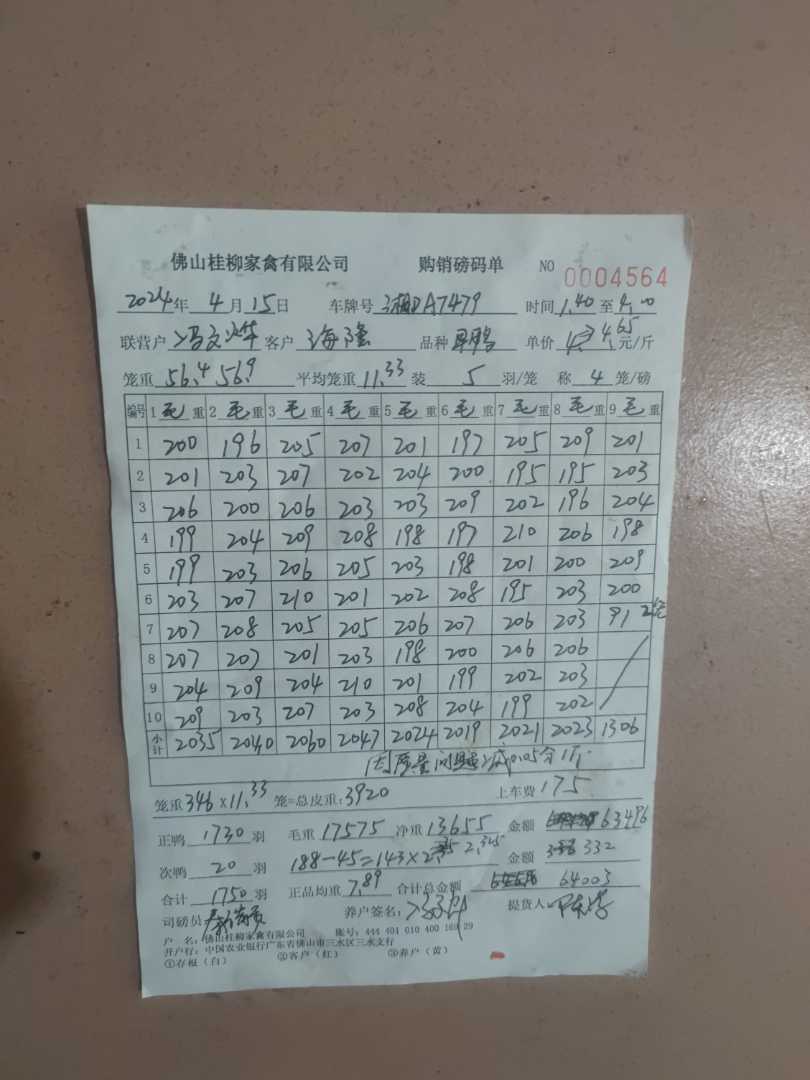 佛山桂柳家禽有限公司 购销磅码单 NO 0004564
2024年 4月15日 车牌号 湘DA7479 时间1.40至4.00
联营户 冯文烨 客户 海隆 品种 单价 4.65元/斤
笼重 56.4 56.9 平均笼重11.33装 5 羽/笼 称 4 笼/磅
编号 1毛重 2毛重 3毛重 4毛重 5毛重 6毛重 7毛重 8毛重 9毛重
1 200 196 205 207 201 197 205 209 201
2 201 203 207 202 204 200 195 195 203
3 206 200 206 203 203 209 202 196 204
4 199 204 209 208 198 197 210 206 198
5 199 203 206 205 203 198 201 200 209
6 203 207 210 201 202 208 195 203 200
7 207 208 205 205 206 207 206 203 91 2笼
8 207 207 201 203 198 200 206 206
9 204 209 204 210 201 199 202 203
10 209 203 207 203 208 204 199 202
小计 2035 2040 2060 2047 2024 2019 2021 2023 1306
因质量问题减0.05分1斤
笼重346×11.33 笼=总皮重:3920 上车费 175
正鸭 1730 羽 毛重 17575 净重 13655 金额 63496
次鸭 20 羽 188-45=143×2.325 金额 332
合计 1750 羽 正品均重 7.89 合计总金额 64003
司磅员 养户签名: 提货人
户 名:佛山桂柳家禽有限公司 账号:444 401 010 400 169 29
开户行:中国农业银行广东省佛山市三水区三水支行
①存根(白) ②客户(红) ③养户(黄)